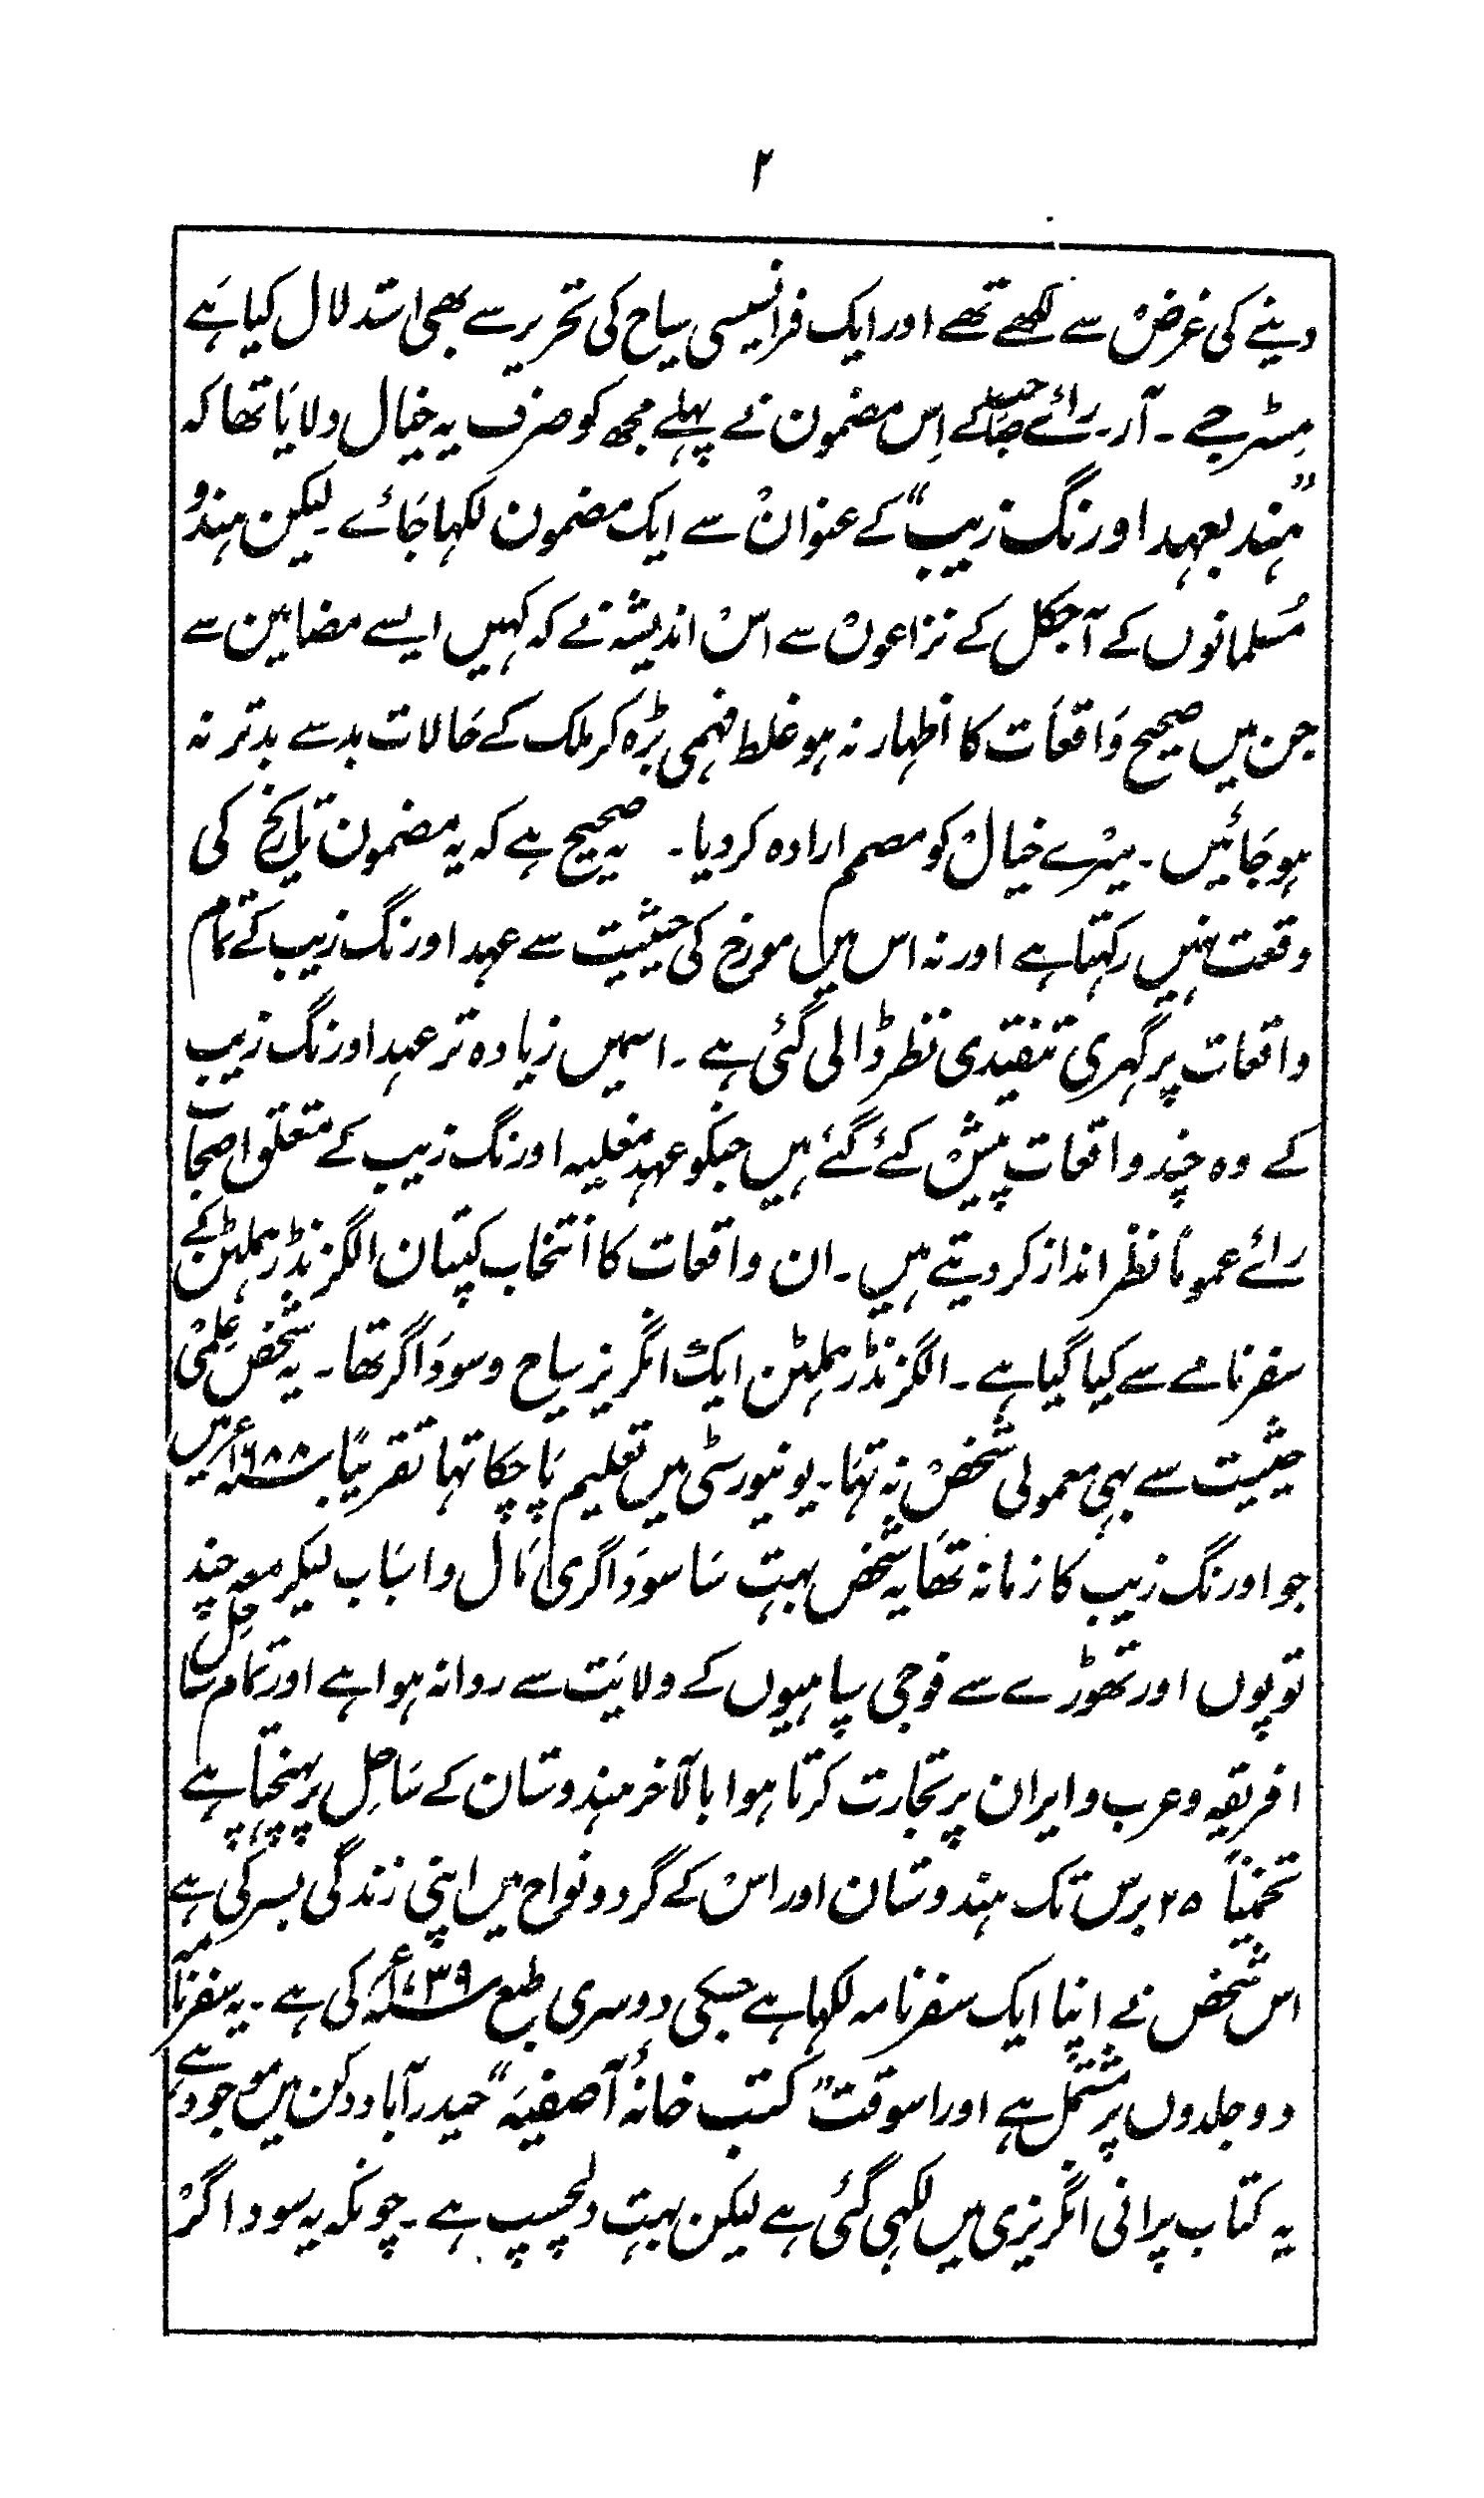 ۲
دینے کی غرض سے لکھے تھے اور ایک فرانسیسی سیاح کی تحریر سے بھی استدلال کیا ہے
مسٹر جے ۔ آر ۔ رائے صاحب کے اِس مضمون نے پہلے مجھ کو صرف یہ خیال دلایا تھا کہ
"ہند بعہد اورنگ زیب" کے عنوان سے ایک مضمون لکہا جائے ۔ لیکن ہندؤ
مُسلمانوں کے آجکل کے نزاعوں سے اس اندیشہ نے کہ کہیں ایسے مضامین سے
جن میں صحیح واقعات کا اظہار نہ ہو غلط فہمی بڑہ کر ملک کے حالات بد سے بدتر نہ
ہو جائیں ۔ میرے خیال کو مصمم ارادہ کر دیا ۔ یہ صحیح ہے کہ یہ مضمون تاریخ کی
وقعت نہیں رکہتا ہے اور نہ اس میں مورخ کی حیثیت سے عہد اورنگ زیب کے تمام
واقعات پر گہری تنقیدی نظر ڈالی گئی ہے ۔ اسمیں زیادہ تر عہد اورنگ زیب
کے وہ چند واقعات پیش کئے گئے ہیں جنکو عہد مغلیہ اورنگ زیب کے متعلق اصحاب
رائے عموماً نظر انداز کر دیتے ہیں ۔ ان واقعات کا انتخاب کپتان الگزنڈر ہملٹن کے
سفرنامے سے کیا گیا ہے ۔ الگزنڈر ہملٹن ایک انگریز سیاح و سوداگر تھا ۔ یہ شخص علمی
حیثیت سے بہی معمولی شخص نہ تہا ۔ یونیورسٹی میں تعلیم پا چکا تہا تقریباً ۱۶۸۸ء میں
جو اورنگ زیب کا زمانہ تھا یہ شخص بہت سا سوداگری مال و اسباب لیکر معہ چند
توپوں اور تھوڑے سے فوجی سپاہیوں کے ولایت سے روانہ ہوا ہے اور تمام ساحل
افریقہ و عرب و ایران پر تجارت کرتا ہوا بالآخر ہندوستان کے ساحل پر پہنچتا ہے
تخمیناً ۲۵ برس تک ہندوستان اور اس کے گرد و نواح میں اپنی زندگی بسر کی ہے
اس شخص نے اپنا ایک سفرنامہ لکہا ہے جسکی دوسری طبع ۱۷۳۹ء کی ہے ۔ یہ سفرنامہ
دو جلدوں پر مشتمل ہے اور اسوقت "کتب خانۂ آصفیہ" حیدرآباد دکن میں موجود ہے
یہ کتاب پرانی انگریزی میں لکہی گئی ہے لیکن بہت دلچسپ ہے ۔ چونکہ یہ سوداگر